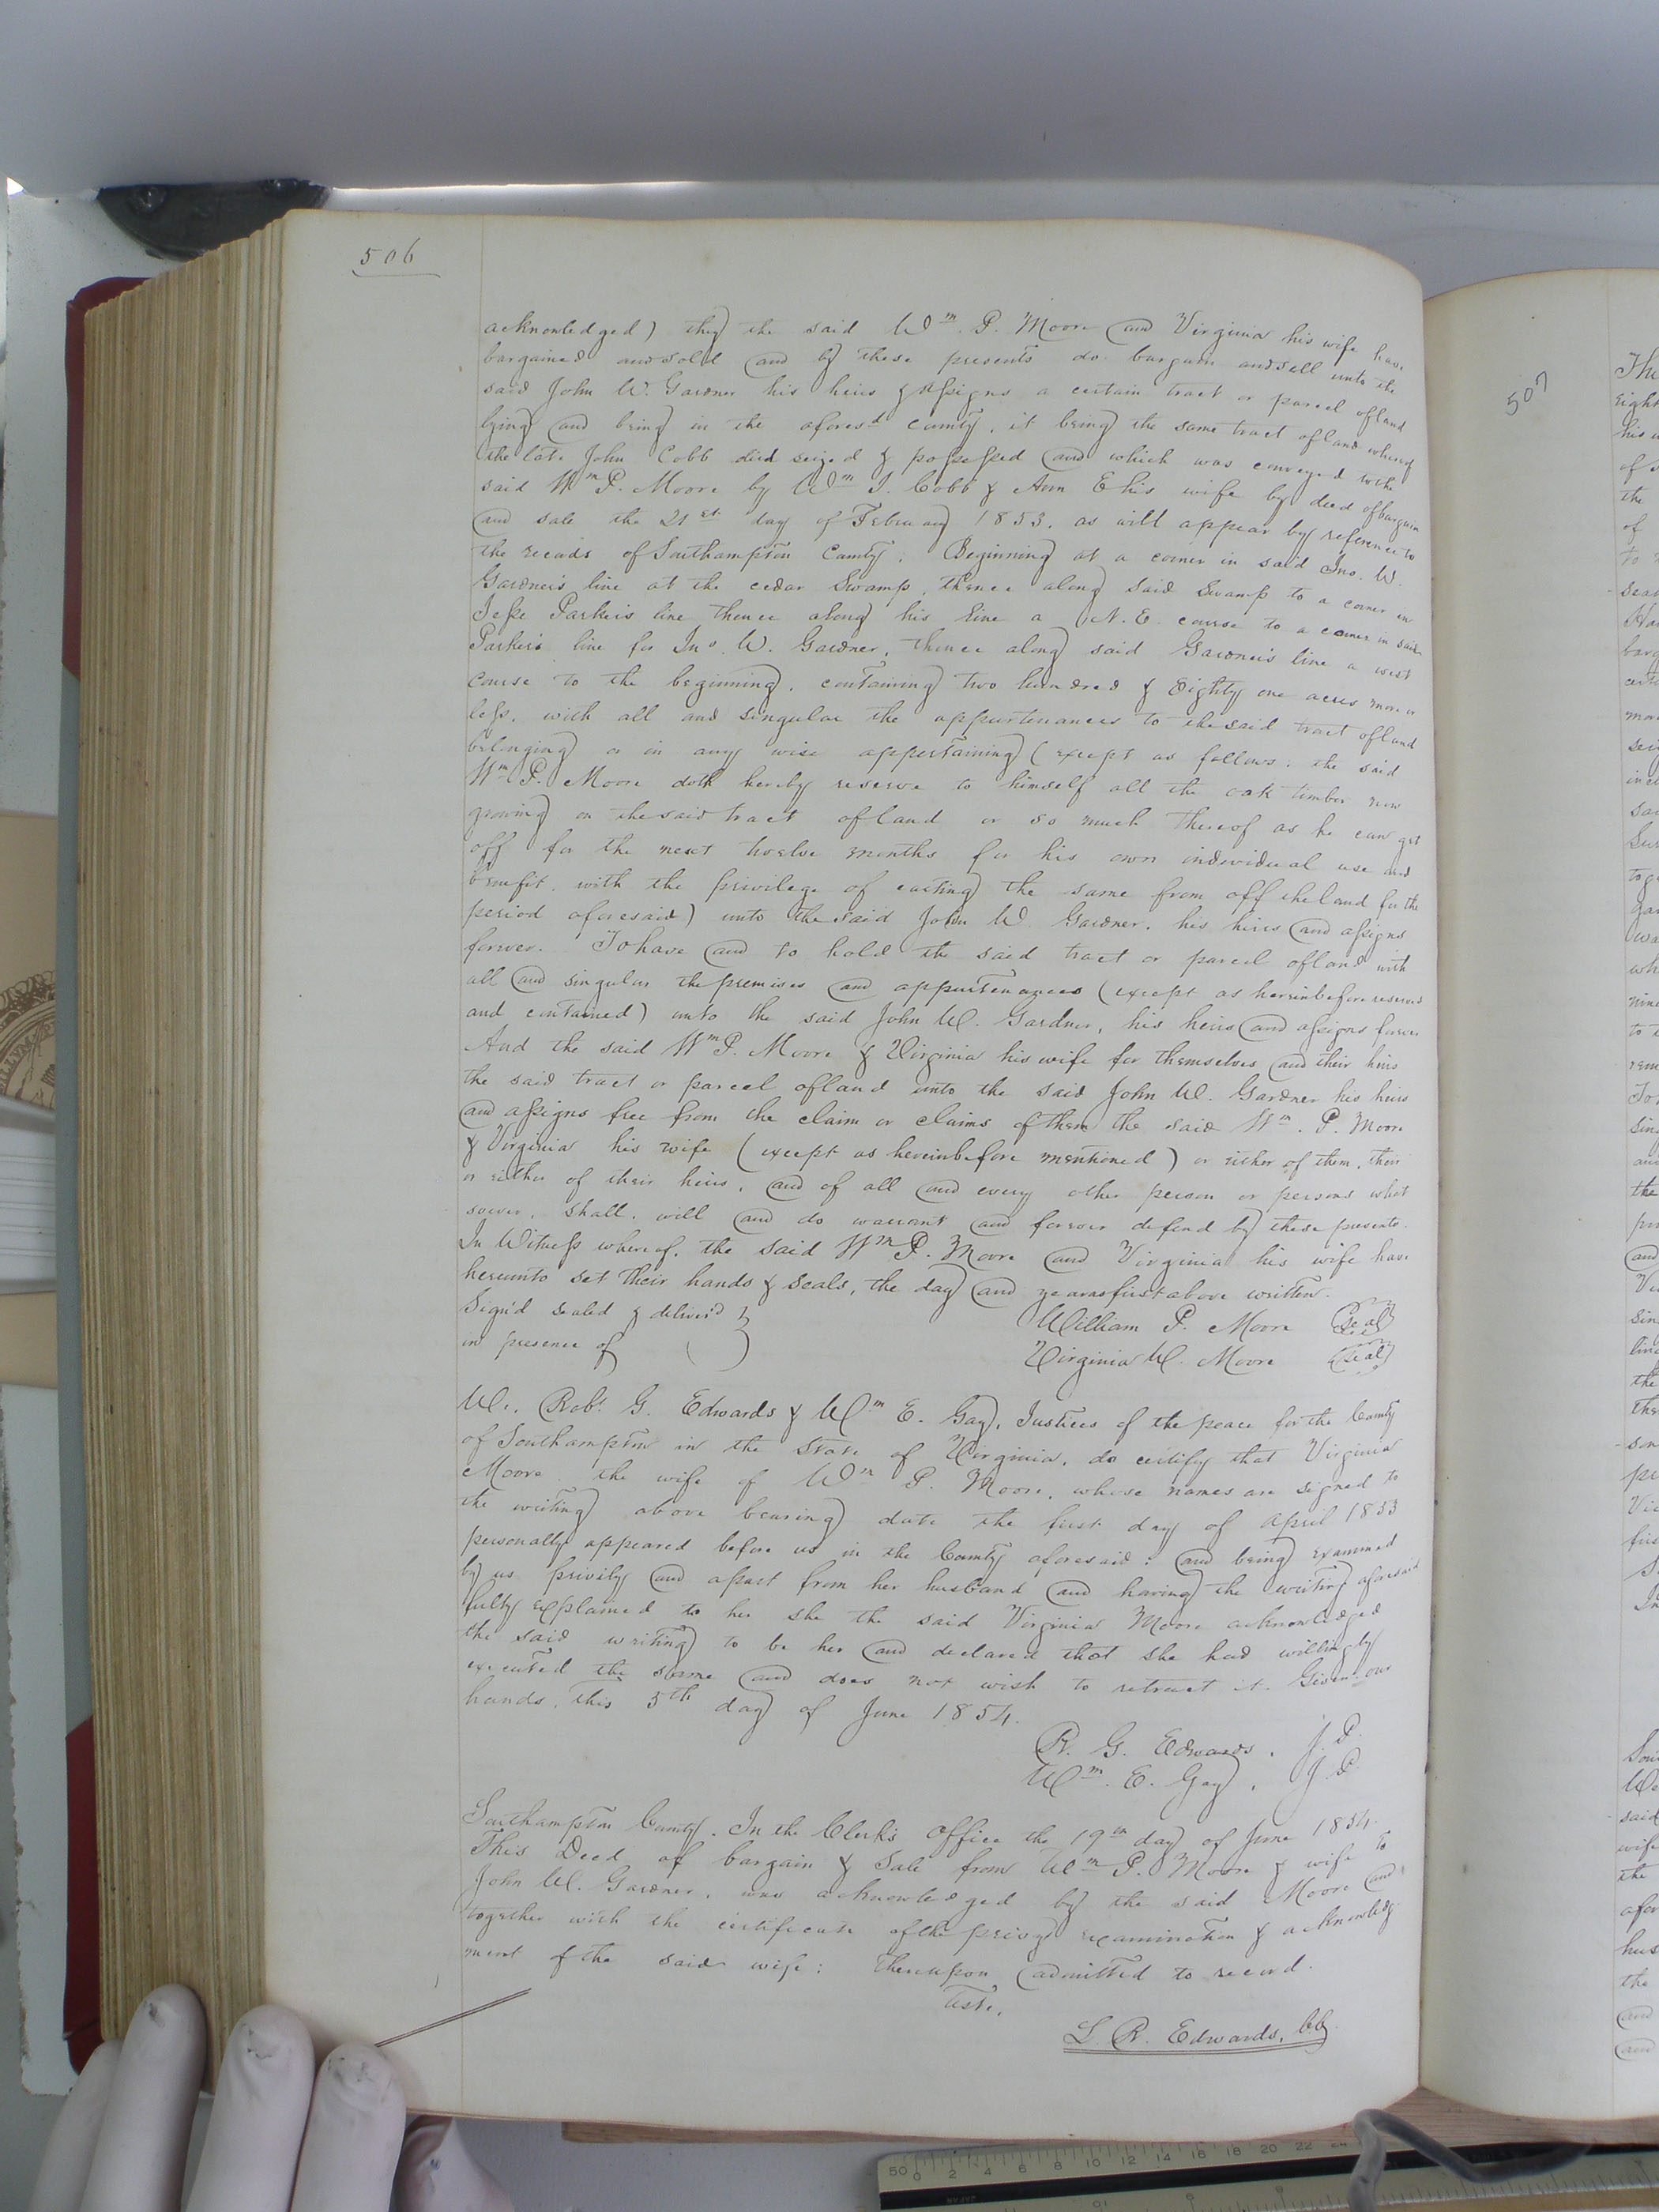 506
acknowledged) they the said Wm. P. Moore and Virginia his wife have
bargained and sold and by these presents do bargain and sell unto the
said John W. Gardner his heirs & assigns a certain tract or parcel of land
lying and being in the aforesd. County, it being the same tract of land whereof
the late John Cobb died seized & possessed and which was conveyed to the
said Wm P. Moore by Wm J. Cobb & Ann E his wife by deed of bargain
and sale the 21st day of February 1853, as will appear by reference to
the records of Southampton County. Beginning at a corner in said Jno. W.
Gardner's line at the cedar Swamp, thence along said Swamp to a corner in
Jesse Parker's line thence along his line a N. E. course to a corner in said
Parker's line for Jno. W. Gardner, thence along said Gardner's line a west
course to the beginning, containing two hundred & Eighty one acres more or
less, with all and singular the appurtenances to the said tract of land
belonging or in any wise appertaining (except as follows: the said
Wm P. Moore doth hereby reserve to himself all the oak timber now
growing on the said tract of land or so much thereof as he can get
off for the next twelve months for his own individual use and
benefit, with the privilege of carting the same from off the land for the
period aforesaid) unto the said John W. Gardner, his heirs and assigns
forever. To have and to hold the said tract or parcel of land with
all and singular the premises and appurtenances (except as hereinbefore reserved
and contained) unto the said John W. Gardner, his heirs and assigns forever
And the said Wm P. Moore & Virginia his wife for themselves and their heirs
the said tract or parcel of land unto the said John W. Gardner his heirs
and assigns free from the claim or claims of them the said Wm. P. Moore
& Virginia his wife (except as hereinbefore mentioned) or either of them, their
or either of their heirs, and of all and every other person or persons what
soever, shall, will and do warrant and forever defend by these presents.
In Witness whereof, the said Wm P. Moore and Virginia his wife have
hereunto set their hands & seals, the day and year as first above written.
Sign'd sealed & deliver'd }
William P. Moore (Seal)
in presence of ( )
Virginia W. Moore (Seal)
We, Robt. G. Edwards & Wm E. Gay, Justices of the peace for the County
of Southampton in the State of Virginia, do certify that Virginia
Moore the wife of Wm P. Moore, whose names are signed to
the writing above bearing date the first day of April 1853
personally appeared before us in the County aforesaid: and being examined
by us privily and apart from her husband and having the writing aforesaid
fully explained to her she the said Virginia Moore acknowledged
the said writing to be her and declared that she had willingly
executed the same and does not wish to retract it. Given our
hands, this 5th day of June 1854.
R. G. Edwards, J. P.
Wm. E. Gay, J. P
Southampton County. In the Clerk's Office the 19th day of June 1854.
This Deed of bargain & Sale from Wm P. Moore & wife to
John W. Gardner, was acknowledged by the said Moore and
together with the certificate of the privy examination & acknowledg
ment of the said wife: thereupon admitted to record.
Teste,
L R. Edwards, CC
507
50 0 2 4 6 8 10 12 14 16 18 20 22 24